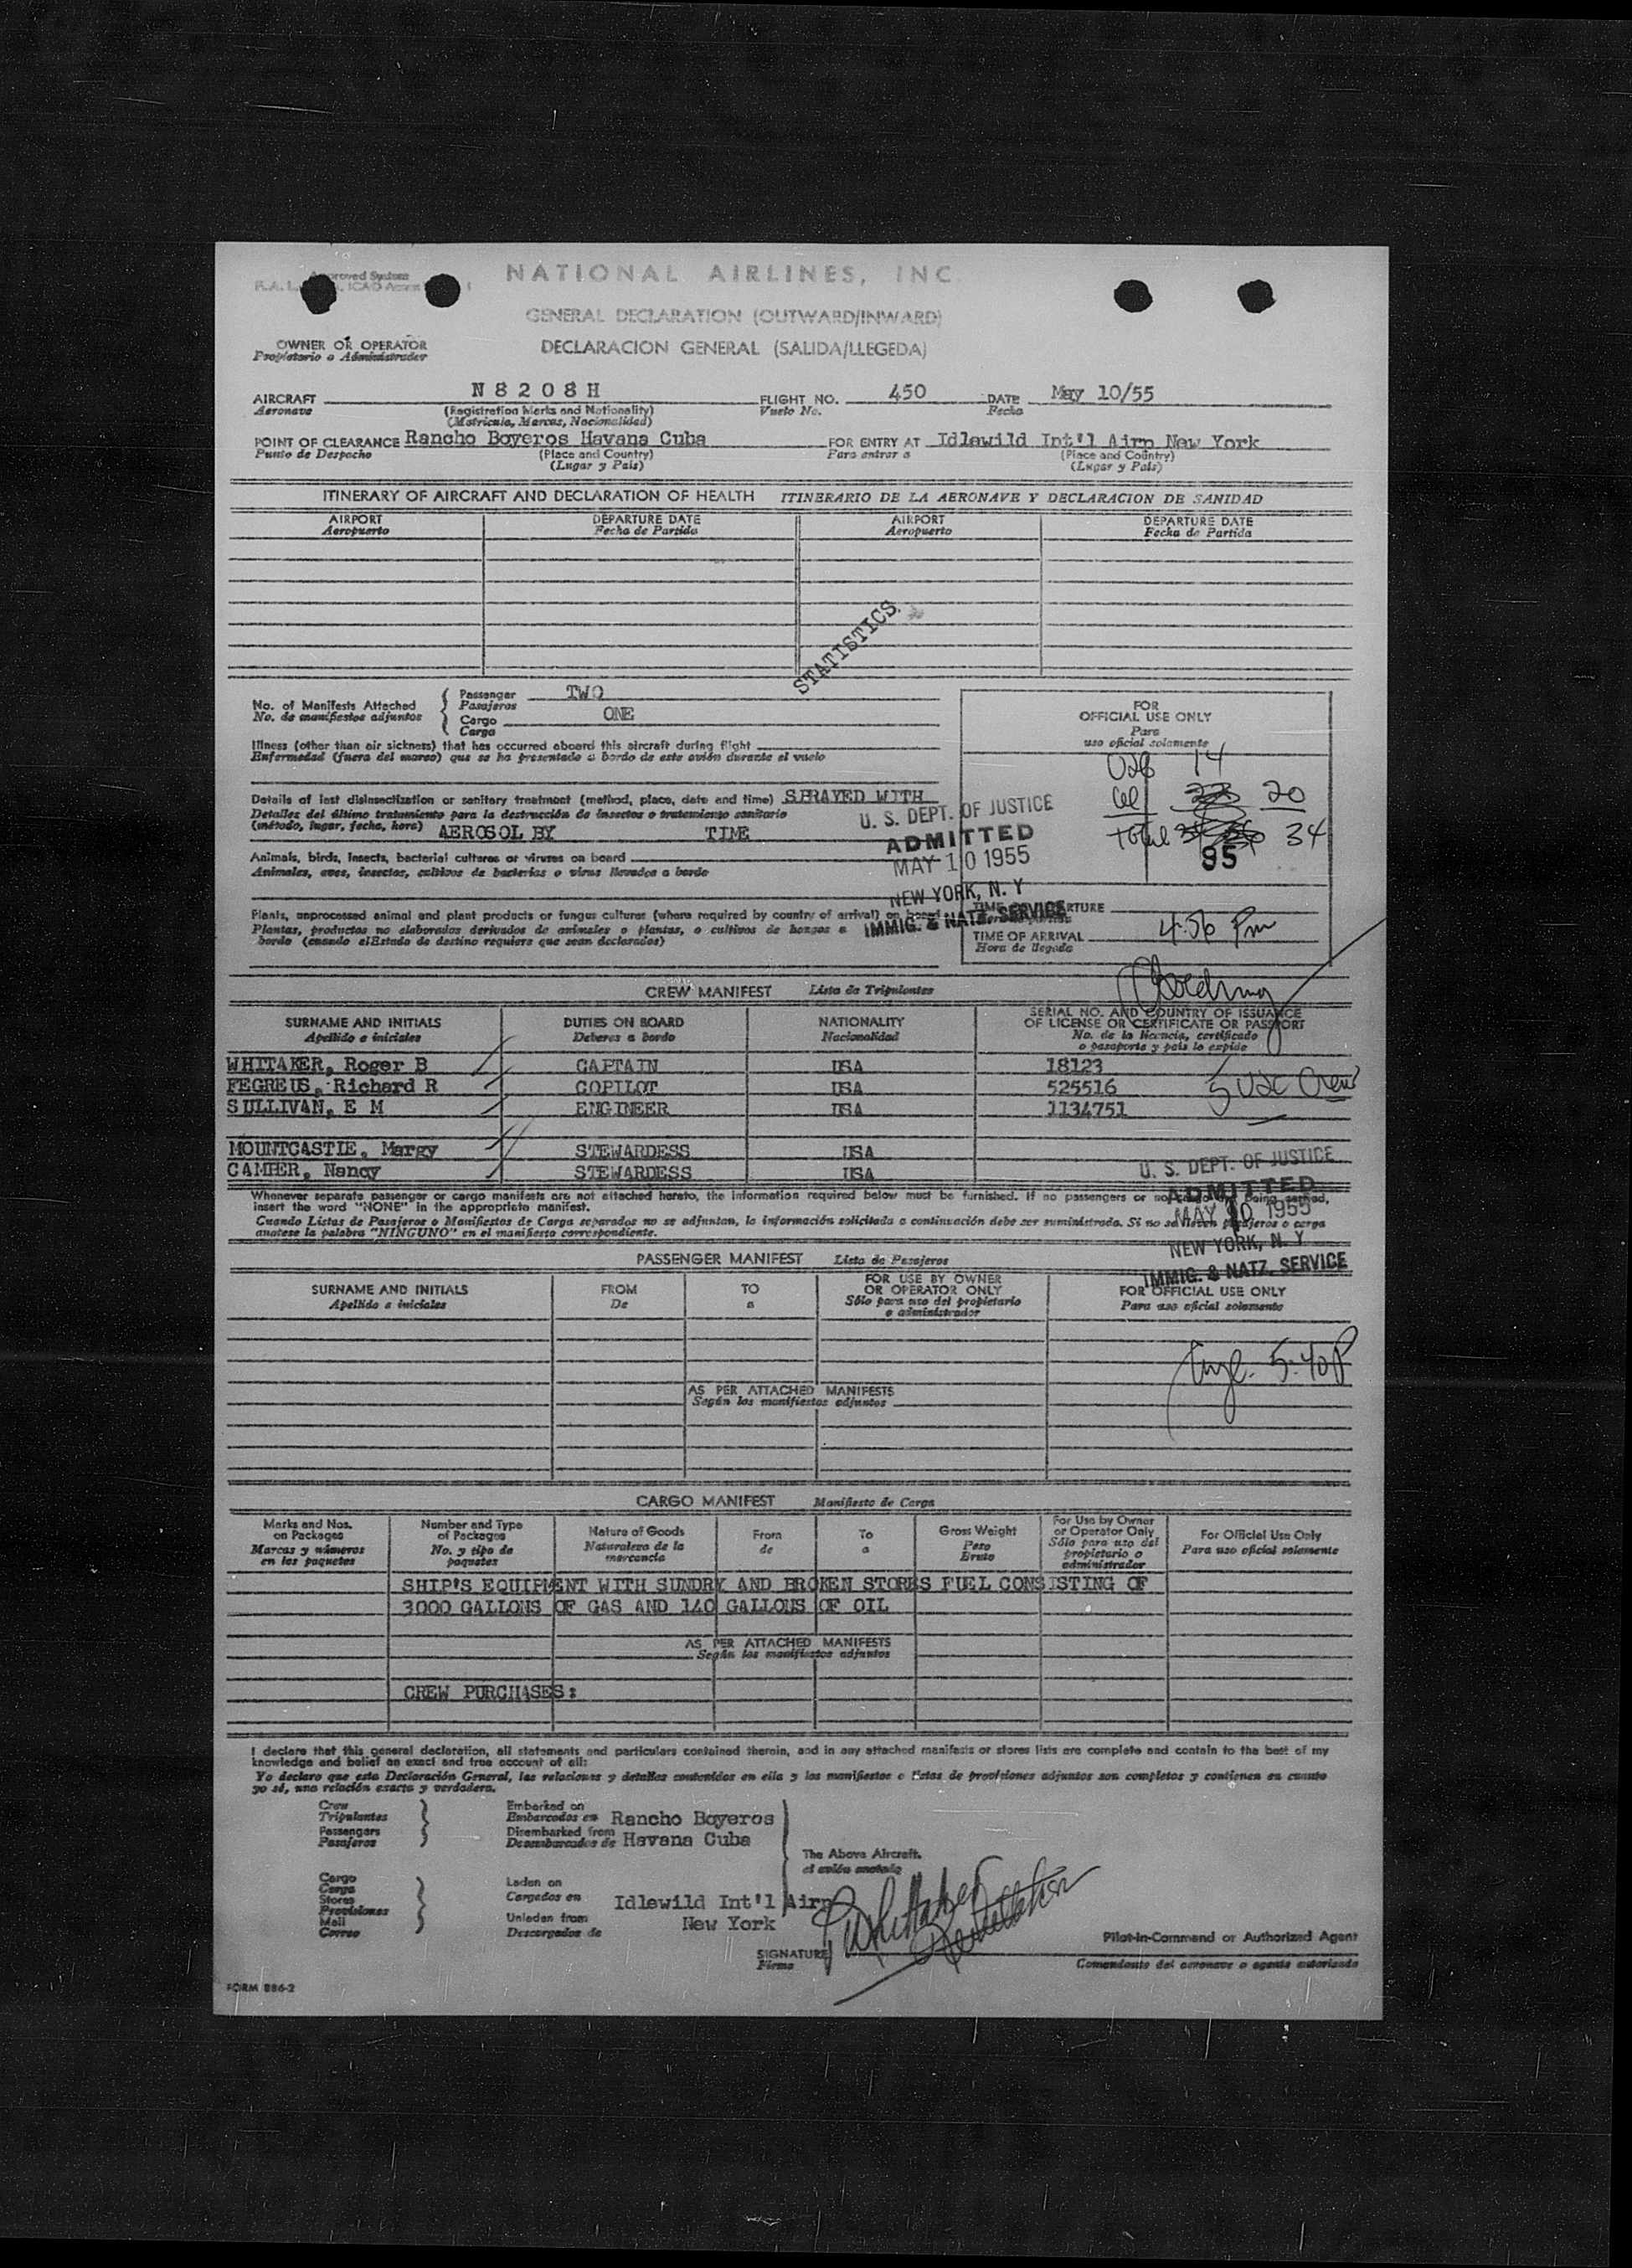 NATIONAL AIRLINES, INC.
GENERAL DECLARATION (OUTWARD/INWARD)
DECLARACION GENERAL (SALIDA/LLEGEDA)
OWNER OR OPERATOR
Propietario o Administrador
AIRCRAFT N 8 2 0 8 H FLIGHT NO. 450 DATE May 10/55
Aeronave (Registration Marks and Nationality) Vuelo No. Fecha
(Matricula, Marcas, Nacionalidad)
POINT OF CLEARANCE Rancho Boyeros Havana Cuba FOR ENTRY AT Idlewild Int'l Airp New York
Punto de Despacho (Place and Country) Para entrar a (Place and Country)
(Lugar y País) (Lugar y País)
ITINERARY OF AIRCRAFT AND DECLARATION OF HEALTH ITINERARIO DE LA AERONAVE Y DECLARACION DE SANIDAD
AIRPORT DEPARTURE DATE AIRPORT DEPARTURE DATE
Aeropuerto Fecha de Partida Aeropuerto Fecha de Partida
STATISTICS
No. of Manifests Attached Passenger TWO
No. de manifiestos adjuntos Pasajeros
Cargo ONE
Carga
FOR
OFFICIAL USE ONLY
Para
uso oficial solamente
Illness (other than air sickness) that has occurred aboard this aircraft during flight
Enfermedad (fuera del mareo) que se ha presentado a bordo de este avión durante el vuelo
14
20
Total 34
95
Details of last disinsectization or sanitary treatment (method, place, date and time) SPRAYED WITH
Detalles del último tratamiento para la destrucción de insectos o tratamiento sanitario
(método, lugar, fecha, hora) AEROSOL BY TIME
U. S. DEPT. OF JUSTICE
ADMITTED
MAY 10 1955
NEW YORK, N. Y
IMMIG. & NATZ. SERVICE
Animals, birds, insects, bacterial cultures or viruses on board
Animales, aves, insectos, cultivos de bacterias o virus llevados a bordo
Plants, unprocessed animal and plant products or fungus cultures (where required by country of arrival) on board
Plantas, productos no elaborados derivados de animales o plantas, o cultivos de hongos a
bordo (cuando el Estado de destino requiera que sean declarados)
TIME OF DEPARTURE
TIME OF ARRIVAL 4:56 Pm
Hora de llegada
CREW MANIFEST Lista de Tripulantes
SURNAME AND INITIALS DUTIES ON BOARD NATIONALITY SERIAL NO. AND COUNTRY OF ISSUANCE
OF LICENSE OR CERTIFICATE OR PASSPORT
Apellido e iniciales Deberes a bordo Nacionalidad No. de la licencia, certificado
o pasaporte y país lo expide
WHITAKER, Roger B CAPTAIN USA 18123
FEGREUS, Richard R COPILOT USA 525516
5 USC Crew
SULLIVAN, E M ENGINEER USA 1134751
MOUNTCASTLE, Margy STEWARDESS USA
CAMPER, Nancy STEWARDESS USA
U. S. DEPT. OF JUSTICE
ADMITTED
MAY 10 1955
NEW YORK, N. Y
IMMIG. & NATZ. SERVICE
Whenever separate passenger or cargo manifests are not attached hereto, the information required below must be furnished. If no passengers or no cargo are being carried,
insert the word "NONE" in the appropriate manifest.
Cuando Listas de Pasajeros o Manifiestos de Carga separados no se adjuntan, la información solicitada a continuación debe ser suministrada. Si no se llevan pasajeros o carga
anotese la palabra "NINGUNO" en el manifiesto correspondiente.
PASSENGER MANIFEST Lista de Pasajeros
SURNAME AND INITIALS FROM TO FOR USE BY OWNER
OR OPERATOR ONLY FOR OFFICIAL USE ONLY
Apellido e iniciales De a Sólo para uso del propietario
o administrador Para uso oficial solamente
5:40P
AS PER ATTACHED MANIFESTS
Según los manifiestos adjuntos
CARGO MANIFEST Manifiesto de Carga
Marks and Nos.
on Packages
Marcas y números
en los paquetes
Number and Type
of Packages
No. y tipo de
paquetes
Nature of Goods
Naturaleza de la
mercancía
From
de
To
a
Gross Weight
Peso
Bruto
For Use by Owner
or Operator Only
Sólo para uso del
propietario o
administrador
For Official Use Only
Para uso oficial solamente
SHIP'S EQUIPMENT WITH SUNDRY AND BROKEN STORES FUEL CONSISTING OF
3000 GALLONS OF GAS AND 140 GALLONS OF OIL
AS PER ATTACHED MANIFESTS
Según los manifiestos adjuntos
CREW PURCHASES:
I declare that this general declaration, all statements and particulars contained therein, and in any attached manifests or stores lists are complete and contain to the best of my
knowledge and belief an exact and true account of all:
Yo declaro que esta Declaración General, las relaciones y detalles contenidos en ella y los manifiestos o listas de provisiones adjuntos son completos y contienen en cuanto
yo sé, una relación exacta y verdadera.
Crew
Tripulantes
Passengers
Pasajeros
Embarked on
Embarcados en Rancho Boyeros
Disembarked from
Desembarcados de Havana Cuba
The Above Aircraft.
el avión anotado
Cargo
Carga
Stores
Provisiones
Mail
Correo
Laden on
Cargados en Idlewild Int'l Airp
Unladen from New York
Descargados de
SIGNATURE
Firma
Pilot-in-Command or Authorized Agent
Comandante del aeronave o agente autorizado
FORM 886-2